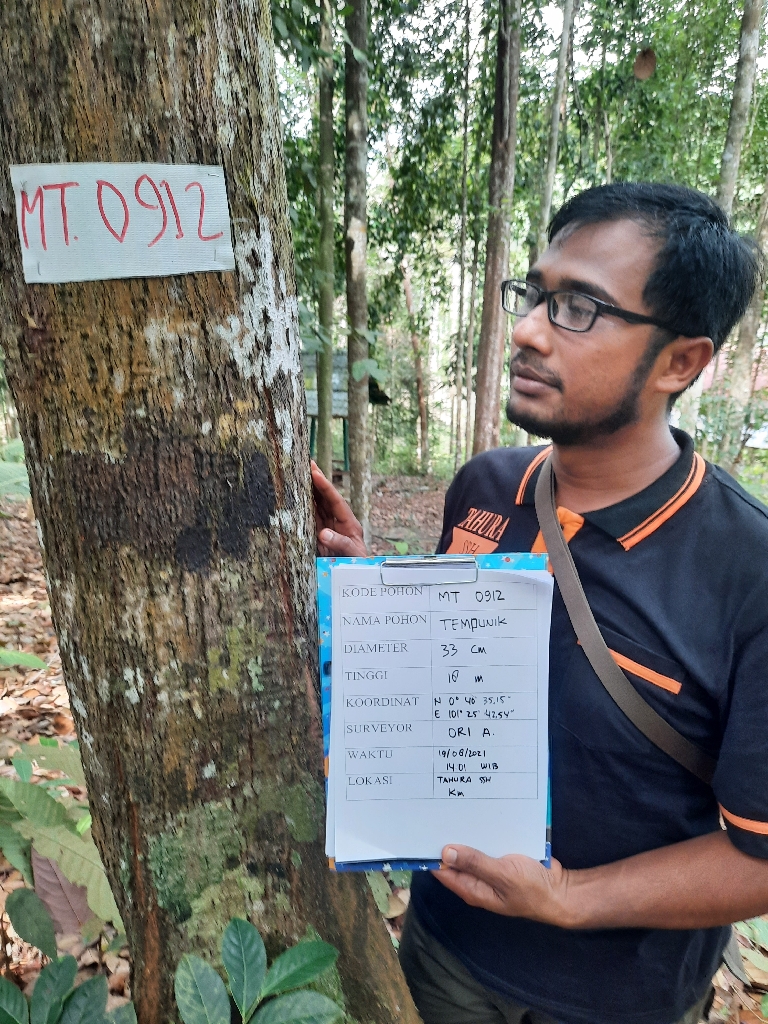 MT. 0912
KODE POHON MT 0912
NAMA POHON TEMPUNIK
DIAMETER 33 CM
TINGGI 18 m
KOORDINAT N 0° 40' 35.15"
E 101° 25' 42.54"
SURVEYOR ORI A.
WAKTU 19/06/2021
14.01 WIB
LOKASI TAHURA SSH
Km